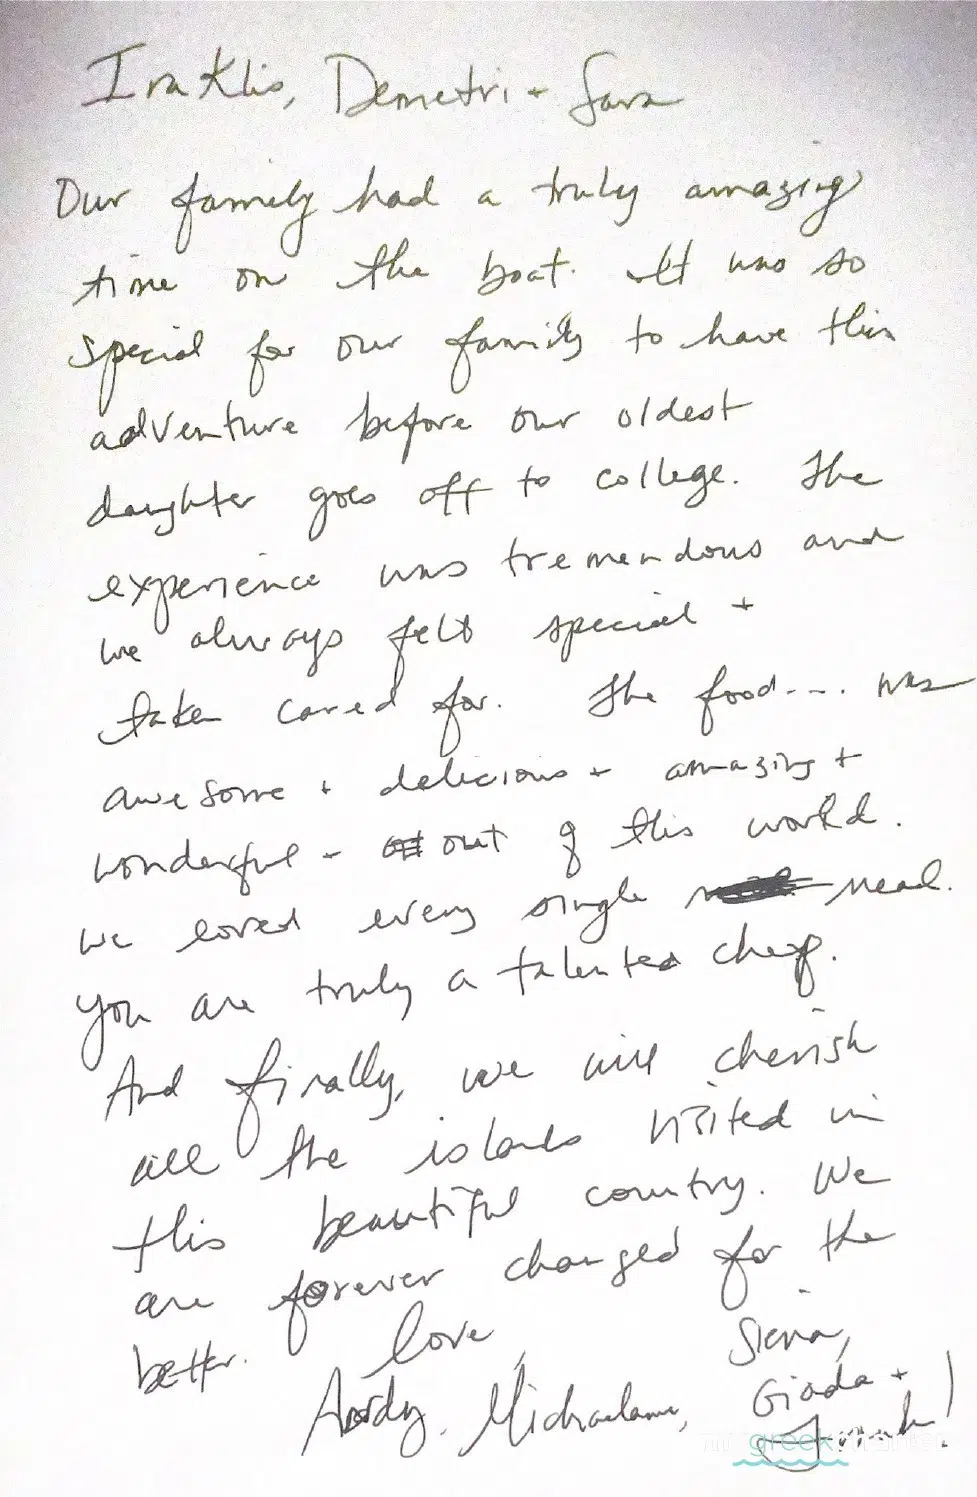 Iraklis, Demetri + Sara
Our family had a truly amazing
time on the boat. It was so
special for our family to have this
adventure before our oldest
daughter goes off to college. The
experience was tremendous and
we always felt special +
taken cared for. The food.... was
awesome + delicious + amazing +
wonderful - out of this world.
we loved every single meal.
you are truly a talented chef.
And finally, we will cherish
all the islands visited in
this beautiful country. We
are forever changed for the
better.
love,
Andy, Michaelann, Siena,
Giada +
greek